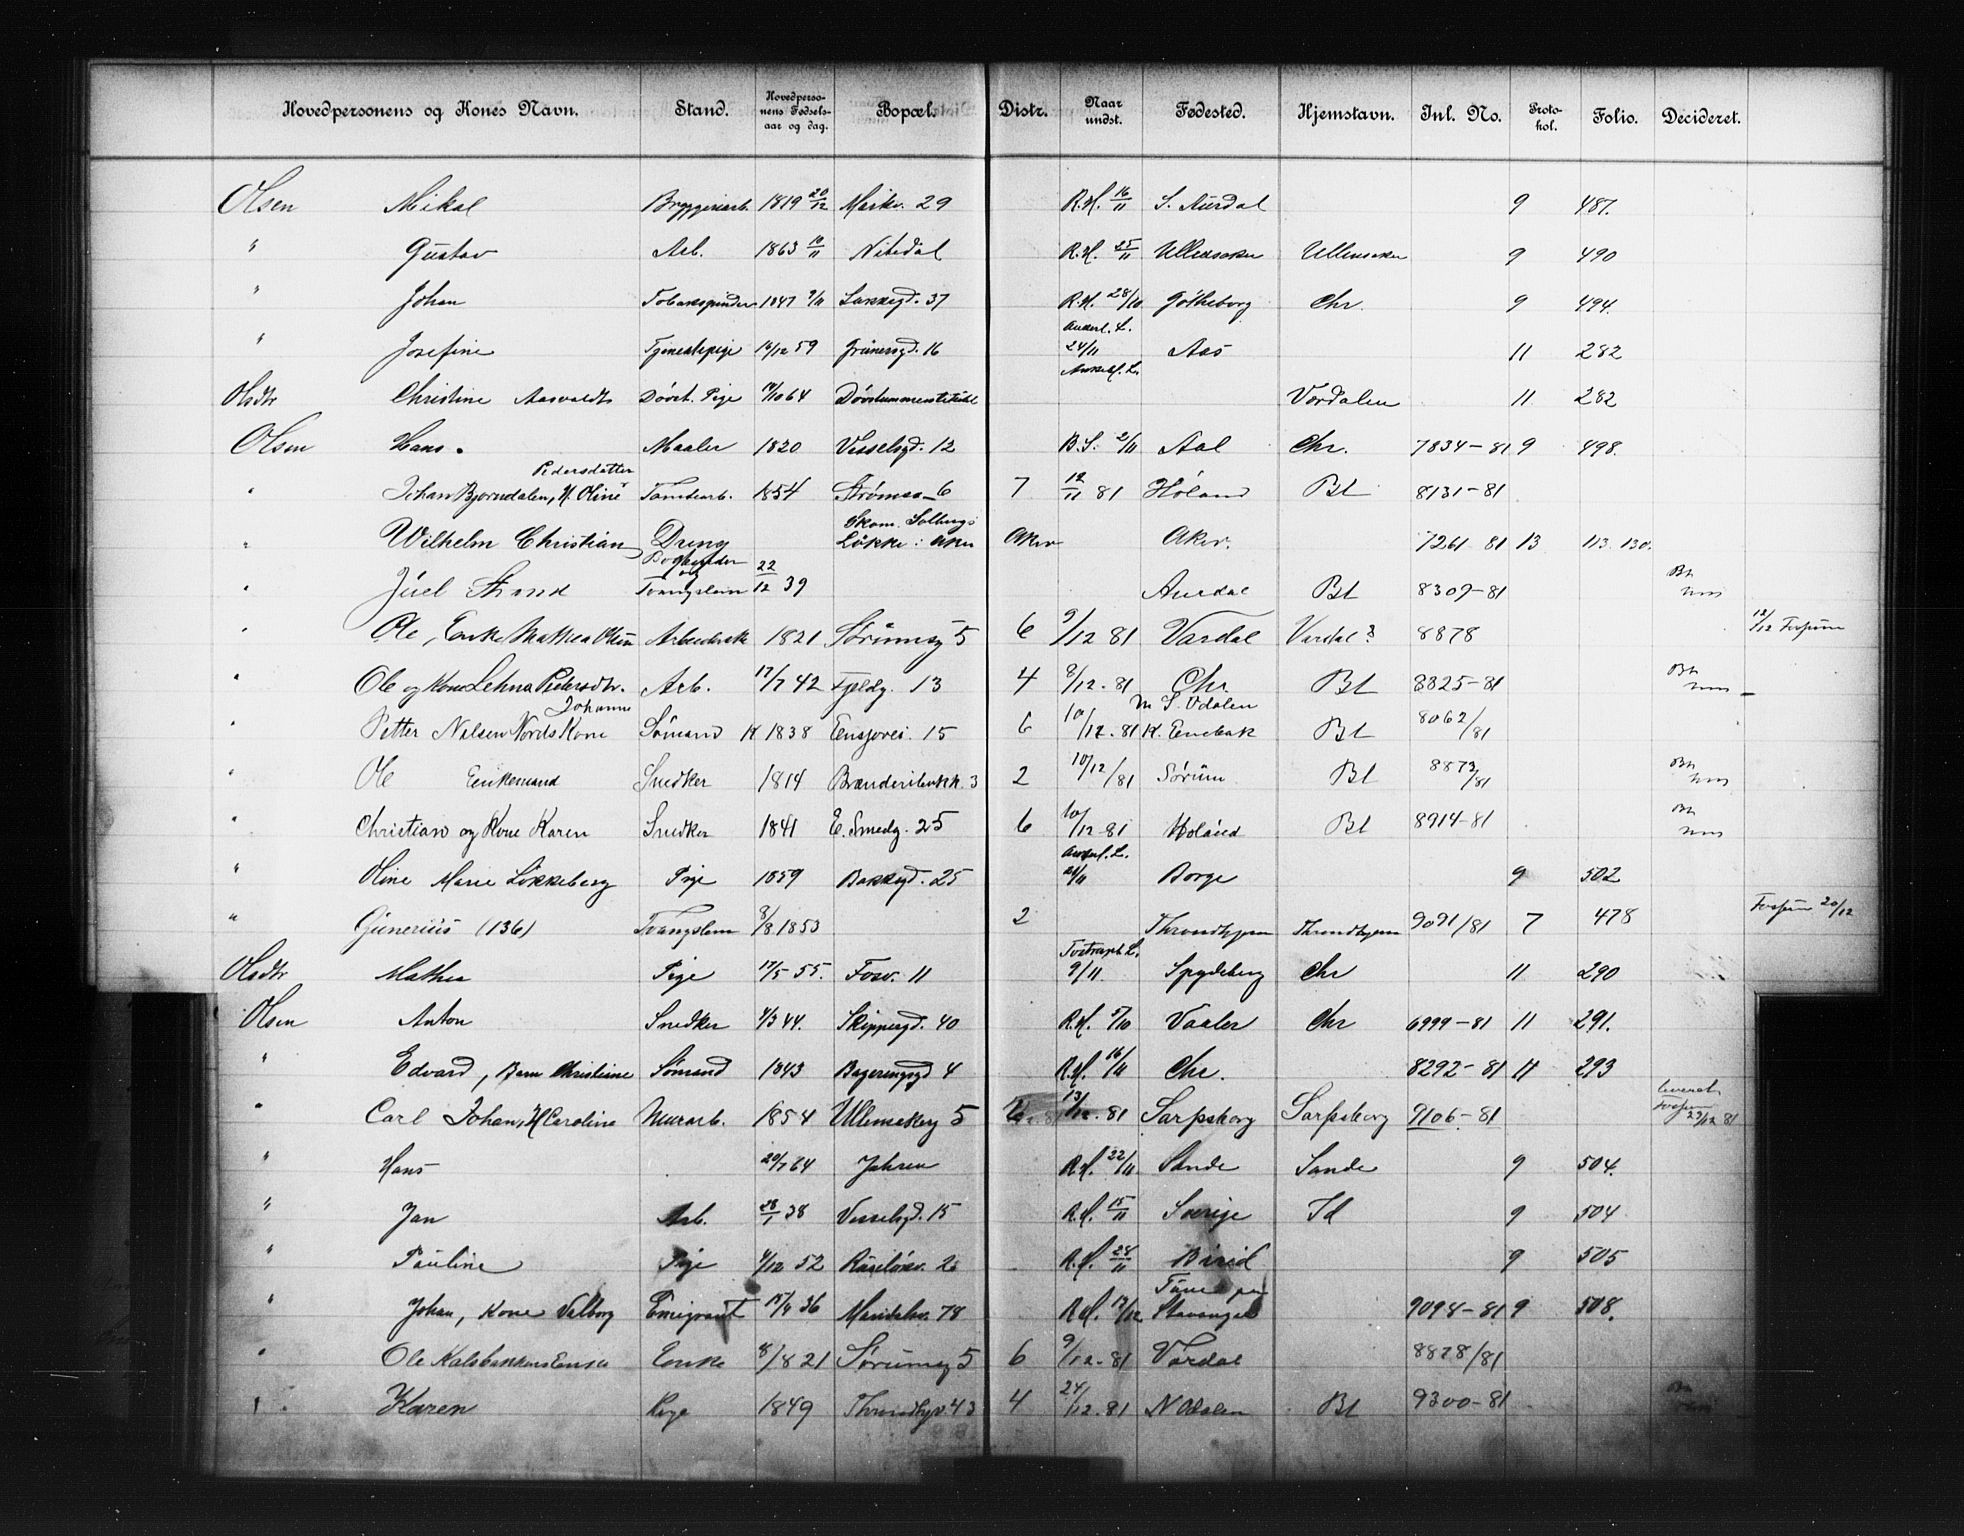 Hovedpersonens og Kones Navn. Stand. Hovedpersonens Fødselsaar og dag. Bopæl. Distr. Naar undst. Fødested. Hjemstavn. Inl. No. Protokol. Folio. Decideret.
Olsen Mikal Bryggeriarb. 1819 20/12 Markv. 29 R.H. 16/11 S. Aurdal 9 487.
" Gustav Arb. 1863 10/11 Nitedal R.H. 25/11 Ullensaker Ullensaker 9 490
" Johan Tobakspinder 1847 9/11 Lakkegd. 37 R.H. 28/10 Götheborg Chr. 9 494.
" Josefine Tjenestepige 14/12 59 Grünersgd. 16 24/11 Aas 11 282
Olsdtr Christine Aasvoldts Døvst. Pige 64 Døvstummeinstitutet Værdalen 11 282
Olsen Hans. Maaler 1820 Vesselsgd. 12 B.S. 2/11 Aal Chr. 7834-81 9 498.
Pedersdatter
" Johan Bjørndalen, H. Oline Tomtearb. 1854 Strømsv. 6 7 12/11 81 Høland Bt 8131-81
" Wilhelm Christian Dreng Skom. Solbergs Løkke i Aker Aker Aker. 7261-81 13 113. 130.
" Juel Strand Bogbinder og Tvangslem 22/12 39 Aurdal Bt 8309-81 Bt
" Ole, Enke Mathea Olsen Arbeiderske 1821 Sørumsg 5 6 9/12 81 Vardal Vardal? 8878 12/12 Forspørn
" Ole og Kone Lehna Pedersdtr. Arb. 17/7 42 Fjeldg. 13 4 8/12-81 Chr. Bt 8825-81 Bt
Johanne M S. Odalen
" Petter Nilsen Nords Kone Sømand K 1838 Ensjøvei. 15 6 10/12-81 K. Enebak Bt 8062/81
" Ole Enkemand Snedker 1814 Brænderibakk. 3 2 10/12/81 Sørum Bt 8873/81 Bt
" Christian og Kone Karen Snedker 1841 E. Smedg. 25 6 10/12-81 Høland Bt 8914-81 Bt
" Oline Marie Løkkeberg Pige 1859 Bakkegd. 25 Borge 9 502
" Gunerius (136) Tvangslem 8/8 1853 2 Throndhjem Throndhjem 9091/81 7 478 Forspørn 20/12
Olsdtr Mathea Pige 17/5 55. Fosv. 11 9/11 Spydeberg Chr 11 290
Olsen Anton Snedker 4/3 44. Skippergd. 40 R.H. 5/10 Vaaler Chr 6999-81 11 291.
" Edvard, Barn Christine Sømand 1843 Bageringsgd 4 R.H. 16/11 Chr. 8292-81 11 293
" Carl Johan, H Caroline Murarb. 1854 Ullensakerg 5 13/12-81 Sarpsborg Sarpsborg 9106-81 leveret Forspørn 23/12 81
" Hans 29/7 64 Jahren R.H. 22/11 Sande Sande 9 504.
" Jan Arb. 28/1 38 Vesselsgd. 15 R.H. 15/11 Sverige Id 9 504
" Pauline Pige 4/12 52 Ruseløkv. 26 R.H. 28/11 Birid 9 505
" Johan, Kone Valborg Emigrant 15/4 36 Maridalsv. 78 R.H. 13/12 Stavanger 9094-81 9 508.
" Ole Enke 8/8 21 Sørumsg 5 6 9/12-81 Vardal 8878/81
" Karen Pige 1849 Throndhjv. 43 4 24/12-81 N Odalen Bt 9300-81 Bt